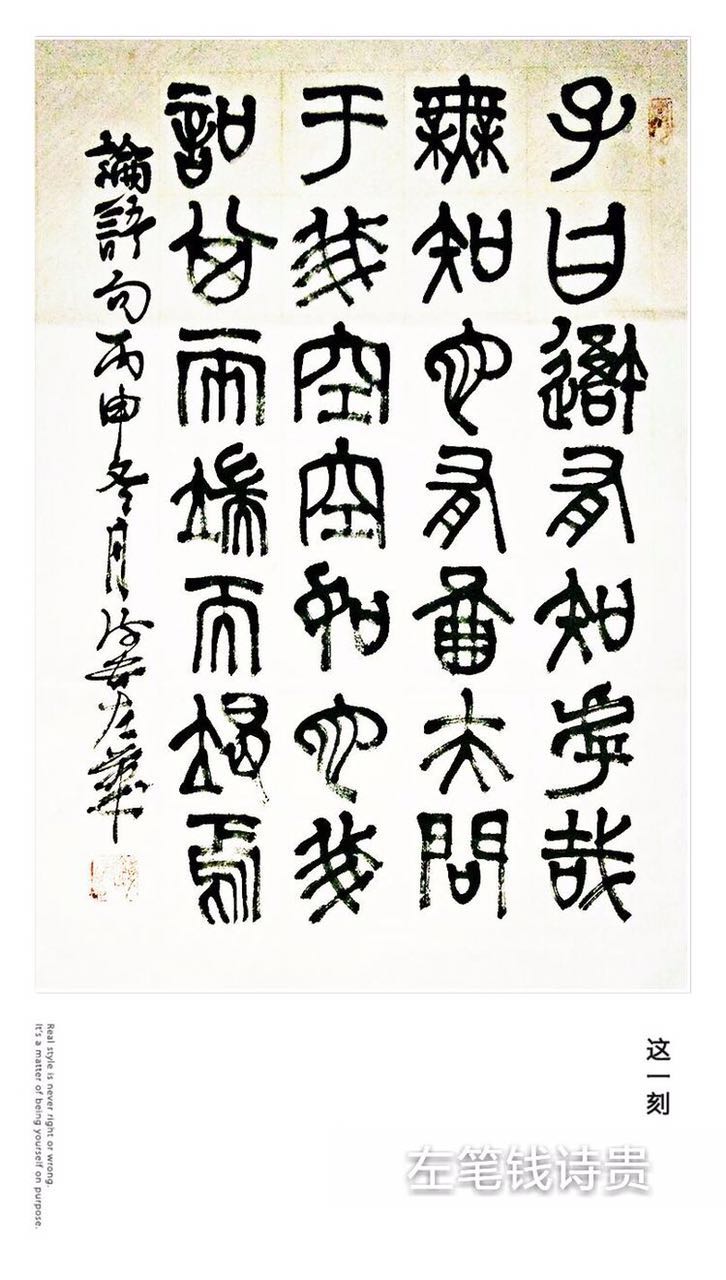 子曰吾有知乎哉
無知也有啚夫問
于我空空如也我
叩其兩端而竭焉
論語句丙申冬月詩貴左筆
这一刻
左笔钱诗贵
Real style is never right or wrong.
It's a matter of being yourself on purpose.